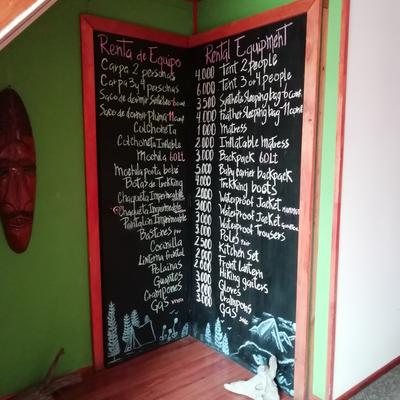 Renta de Equipo
Carpa 2 personas
Carpa 3 y 4 personas
Saco de dormir
Saco de dormir pluma
Colchoneta
Colchoneta Inflable
Mochila 60Lt
Mochila porta bebé
Botas de Trekking
Chaqueta Impermeable
Chaqueta Impermeable
Pantalón Impermeable
Bastones
Cocinilla
Linterna frontal
Polainas
Guantes
Crampones
Gas
Rental Equipment
4.000 Tent 2 people
6.000 Tent 3 or 4 people
3.500 Synthetic sleeping bag
4.000 Feather sleeping bag
1.000 Matress
2.000 Inflatable Matress
3.000 Backpack 60Lt
5.000 Baby carrier backpack
4.000 Trekking boots
2.000 Waterproof Jacket
3.000 Waterproof Jacket
3.000 Waterproof Trousers
3.000 Poles
2.500 Kitchen Set
2.000 Front Lantern
3.000 Hiking gaiters
3.000 Gloves
3.000 Crampons
3.000 Gas